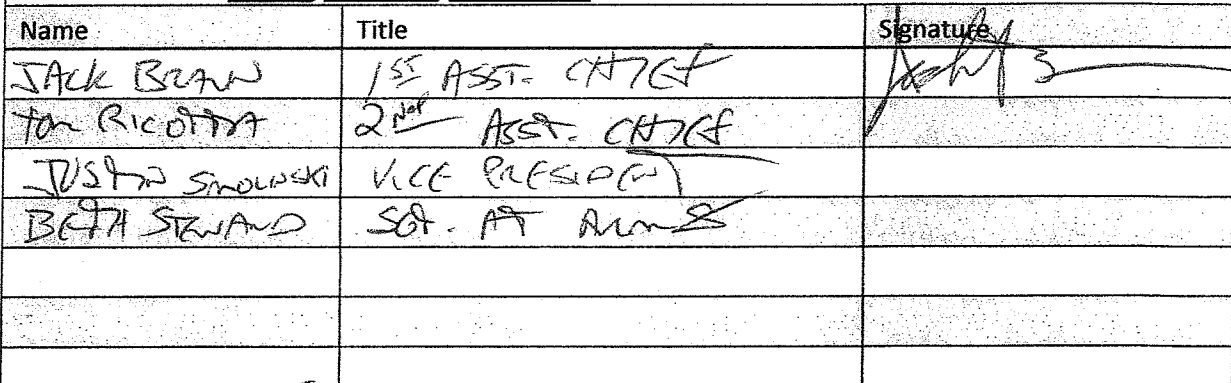 Name Title Signature
JACK BRAUN 1ST ASST. CHIEF
TOM RICOTTA 2ND ASST. CHIEF
JUSTIN SMOLINSKI VICE PRESIDENT
BETH STEWARD SGT. AT ARMS